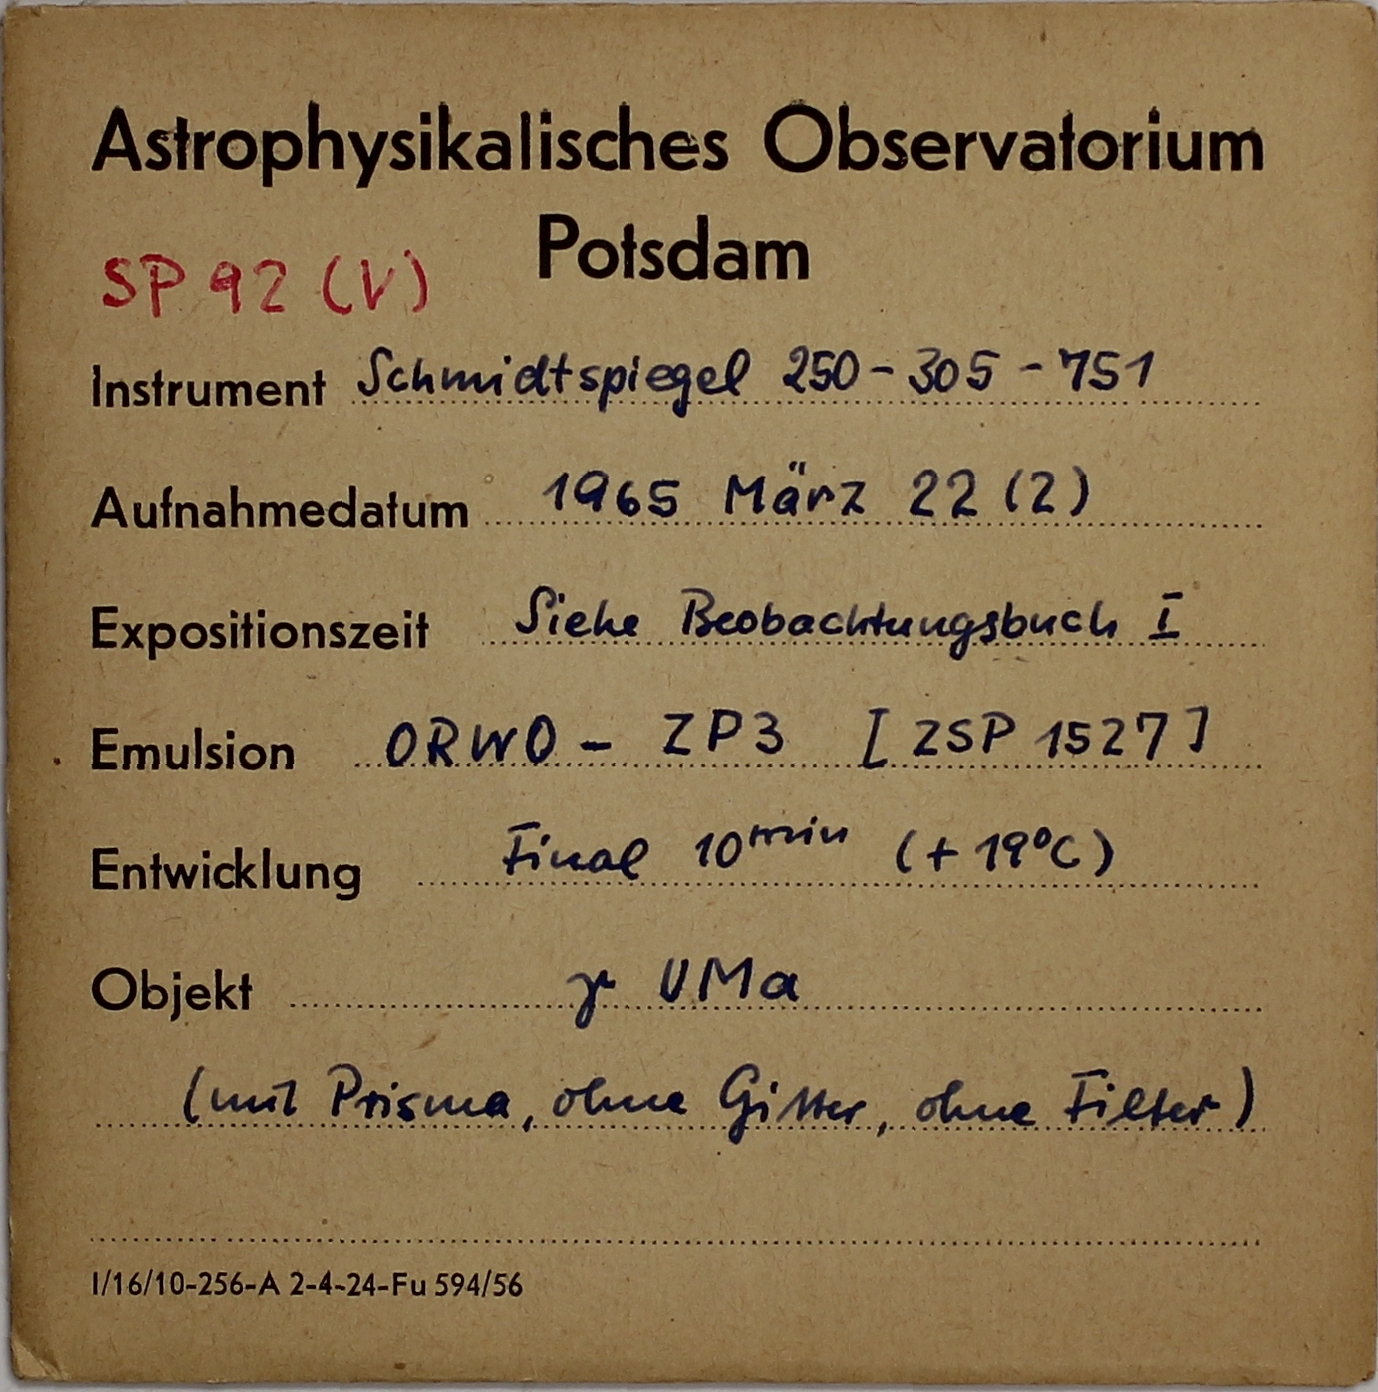 Astrophysikalisches Observatorium
Potsdam
SP 92 (V)
Instrument Schmidtspiegel 250-305-751
Aufnahmedatum 1965 März 22 (2)
Expositionszeit Siehe Beobachtungsbuch I
Emulsion ORWO - ZP3 [ZSP 1527]
Entwicklung Final 10 min (+19°C)
Objekt γ UMa
(mit Prisma, ohne Gitter, ohne Filter)
I/16/10-256-A 2-4-24-Fu 594/56